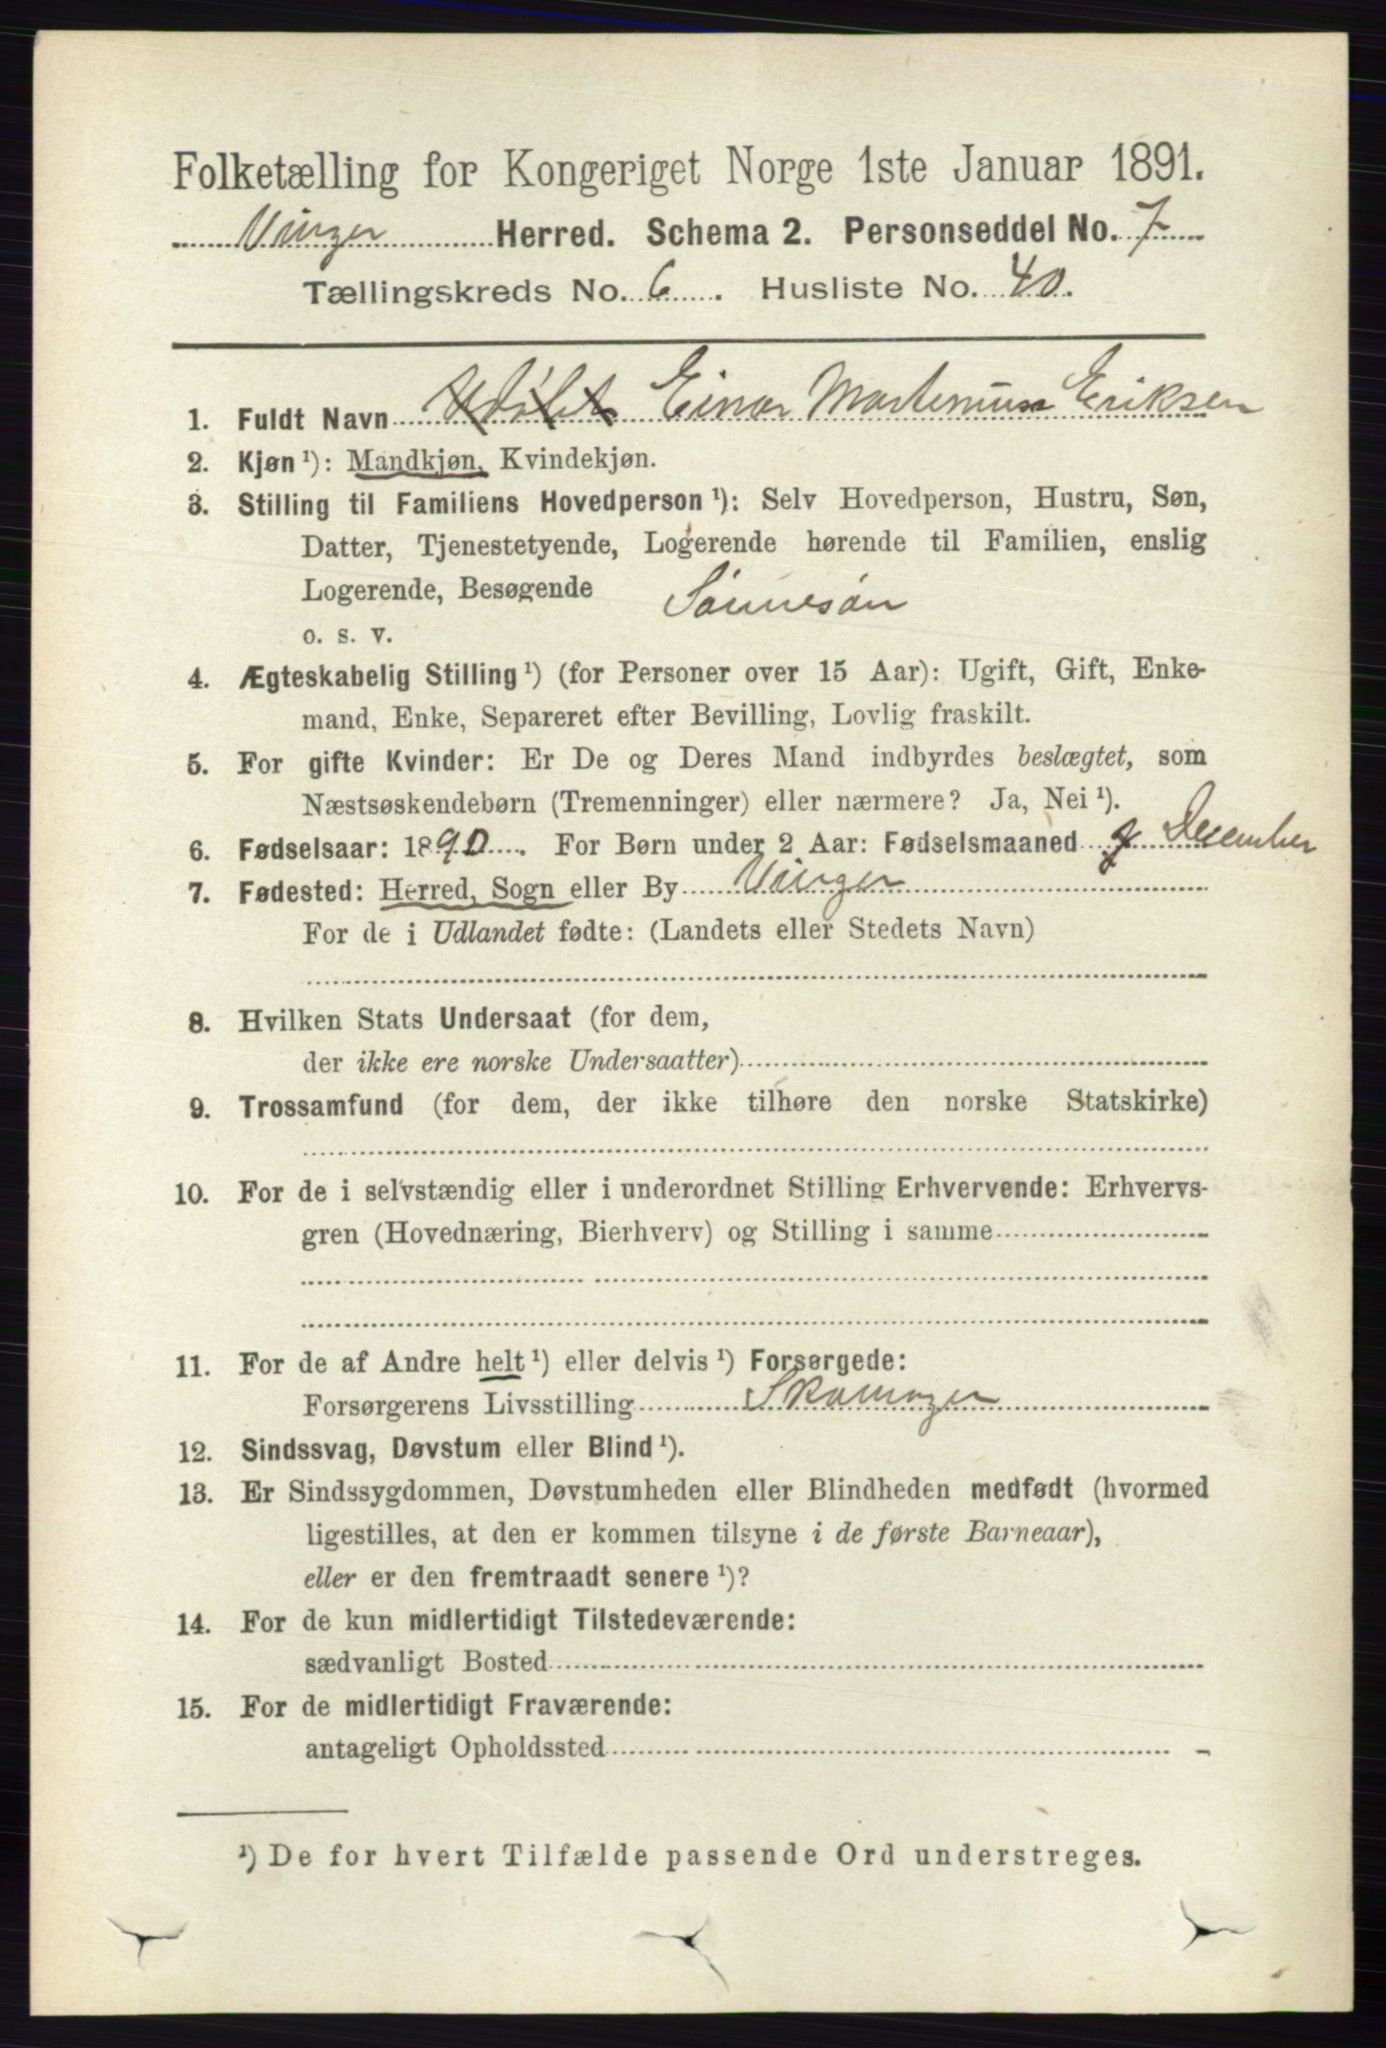 Folketælling for Kongeriget Norge 1ste Januar 1891.
Vinger Herred. Schema 2. Personseddel No. 7
Tællingskreds No. 6. Husliste No. 40.
1. Fuldt Navn Einar Martenius Eriksen
2. Kjøn¹): Mandkjøn, Kvindekjøn.
3. Stilling til Familiens Hovedperson¹): Selv Hovedperson, Hustru, Søn,
Datter, Tjenestetyende, Logerende hørende til Familien, enslig
Logerende, Besøgende Sønnesøn
o. s. v.
4. Ægteskabelig Stilling¹) (for Personer over 15 Aar): Ugift, Gift, Enke-
mand, Enke, Separeret efter Bevilling, Lovlig fraskilt.
5. For gifte Kvinder: Er De og Deres Mand indbyrdes beslægtet, som
Næstsøskendebørn (Tremenninger) eller nærmere? Ja, Nei¹).
6. Fødselsaar: 1890. For Børn under 2 Aar: Fødselsmaaned December
7. Fødested: Herred, Sogn eller By Vinger
For de i Udlandet fødte: (Landets eller Stedets Navn)
8. Hvilken Stats Undersaat (for dem,
der ikke ere norske Undersaatter)
9. Trossamfund (for dem, der ikke tilhøre den norske Statskirke)
10. For de i selvstændig eller i underordnet Stilling Erhvervende: Erhvervs-
gren (Hovednæring, Bierhverv) og Stilling i samme
11. For de af Andre helt¹) eller delvis¹) Forsørgede:
Forsørgerens Livsstilling Skomager
12. Sindssvag, Døvstum eller Blind¹).
13. Er Sindssygdommen, Døvstumheden eller Blindheden medfødt (hvormed
ligestilles, at den er kommen tilsyne i de første Barneaar),
eller er den fremtraadt senere¹)?
14. For de kun midlertidigt Tilstedeværende:
sædvanligt Bosted
15. For de midlertidigt Fraværende:
antageligt Opholdssted
¹) De for hvert Tilfælde passende Ord understreges.